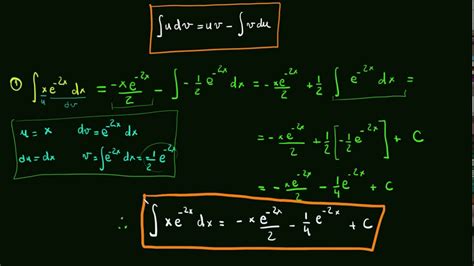 ∫udv = uv - ∫vdu
① ∫xe^{-2x}dx = -xe^{-2x}/2 - ∫-1/2 e^{-2x}dx = -xe^{-2x}/2 + 1/2 ∫e^{-2x}dx =
u dv
u = x dv = e^{-2x}dx
du = dx v = ∫e^{-2x}dx = -1/2 e^{-2x}
= -xe^{-2x}/2 + 1/2[-1/2 e^{-2x}] + C
= -xe^{-2x}/2 - 1/4 e^{-2x} + C
∴ ∫xe^{-2x}dx = -xe^{-2x}/2 - 1/4 e^{-2x} + C